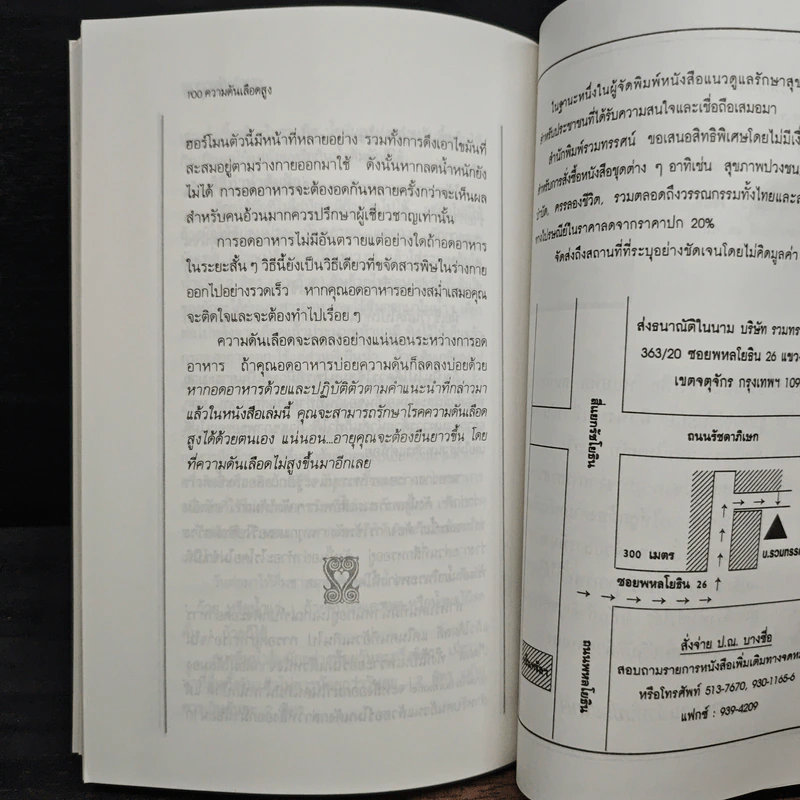 ๑๐๐ ความดันเลือดสูง
ฮอร์โมนตัวนี้มีหน้าที่หลายอย่าง รวมทั้งการดึงเอาไขมันที่
สะสมอยู่ตามร่างกายออกมาใช้ ดังนั้นหากลดน้ำหนักยัง
ไม่ได้ การอดอาหารจะต้องอดกันหลายครั้งกว่าจะเห็นผล
สำหรับคนอ้วนมากควรปรึกษาผู้เชี่ยวชาญเท่านั้น
การอดอาหารไม่มีอันตรายแต่อย่างใดถ้าอดอาหาร
ในระยะสั้น ๆ วิธีนี้ยังเป็นวิธีเดียวที่ขจัดสารพิษในร่างกาย
ออกไปอย่างรวดเร็ว หากคุณอดอาหารอย่างสม่ำเสมอคุณ
จะติดใจและจะต้องทำไปเรื่อย ๆ
ความดันเลือดจะลดลงอย่างแน่นอนระหว่างการอด
อาหาร ถ้าคุณอดอาหารบ่อยความดันก็ลดลงบ่อยด้วย
หากอดอาหารด้วยและปฏิบัติตัวตามคำแนะนำที่กล่าวมา
แล้วในหนังสือเล่มนี้ คุณจะสามารถรักษาโรคความดันเลือด
สูงได้ด้วยตนเอง แน่นอน...อายุคุณจะต้องยืนยาวขึ้น โดย
ที่ความดันเลือดไม่สูงขึ้นมาอีกเลย
ในฐานะหนึ่งในผู้จัดพิมพ์หนังสือแนวดูแลรักษา
สำหรับประชาชนที่ได้รับความสนใจและเชื่อถือเสมอมา
สำนักพิมพ์รวมทรรศน์ ขอเสนอสิทธิพิเศษโดยไม่มี
สำหรับการสั่งซื้อหนังสือชุดต่าง ๆ อาทิเช่น สุขภาพปวงชน,
บำบัด, ครรลองชีวิต, รวมตลอดถึงวรรณกรรมทั้งไทยและ
ทางไปรษณีย์ในราคาลดจากราคาปก 20%
จัดส่งถึงสถานที่ที่ระบุอย่างชัดเจนโดยไม่คิดมูลค่า
ส่งธนาณัติในนาม บริษัท รวมทร
363/20 ซอยพหลโยธิน 26 แขว
เขตจตุจักร กรุงเทพฯ 109
สี่แยกรัชโยธิน
ถนนรัชดาภิเษก
300 เมตร
บ.รวมทรร
ซอยพหลโยธิน 26
ถนนพหลโยธิน
สั่งจ่าย ป.ณ. บางซื่อ
สอบถามรายการหนังสือเพิ่มเติมทางจดห
หรือโทรศัพท์ 513-7670, 930-1165-6
แฟกซ์ : 939-4209